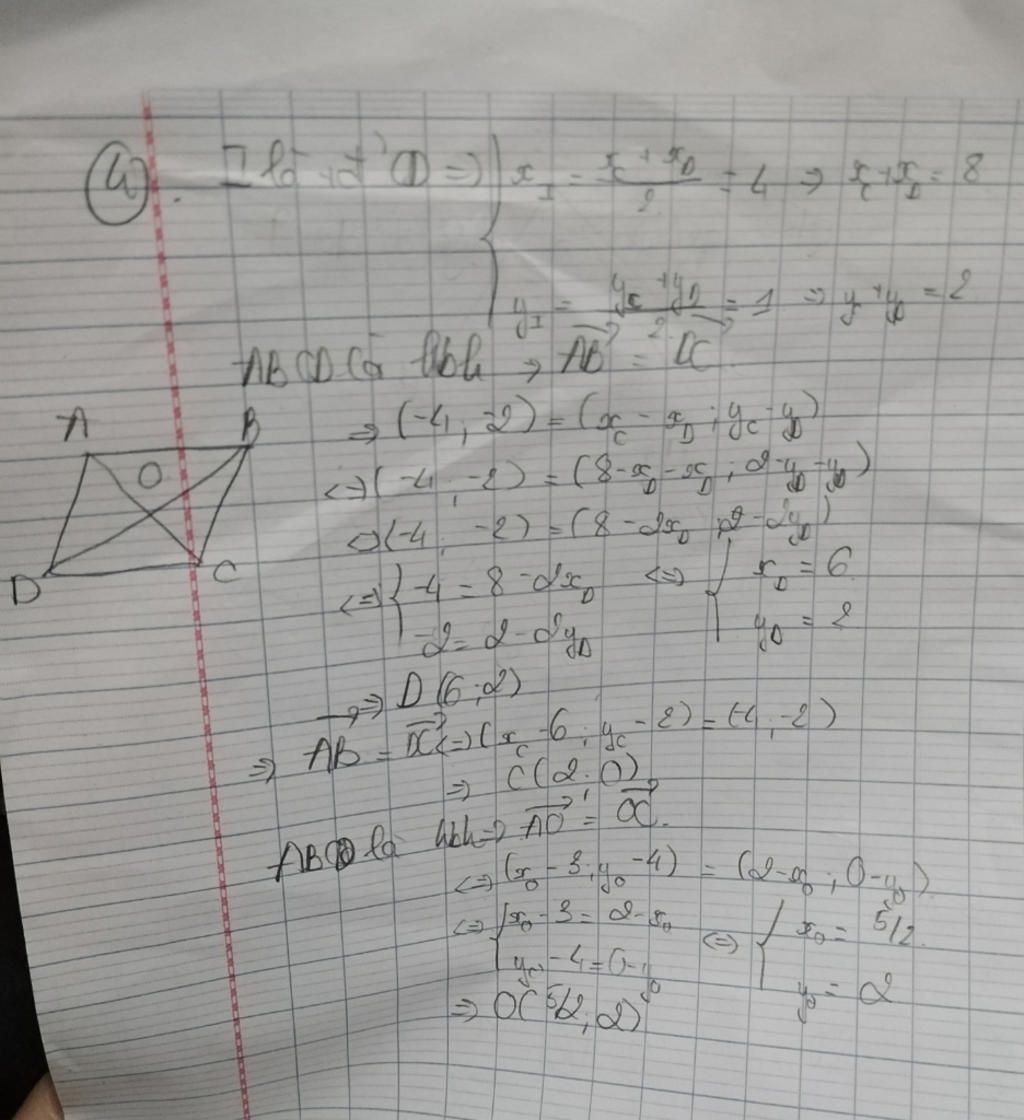 4. I là tđ CD => { x_I = (x_C + x_D)/2 = 4 => x_C + x_D = 8
y_I = (y_C + y_D)/2 = 1 => y + y_D = 2
ABCD là hbh => AB = DC
A B
O
D C
=> (-4; -2) = (x_C - x_D; y_C - y_D)
<=> (-4; -2) = (8 - x_D - x_D; 2 - y_D - y_D)
<=> (-4; -2) = (8 - 2x_D; 2 - 2y_D)
<=> { -4 = 8 - 2x_D <=> { x_D = 6
-2 = 2 - 2y_D y_D = 2
=> D(6; 2)
=> AB = DC <=> (x_C - 6; y_C - 2) = (-4; -2)
=> C(2; 0)
ABCD là hbh => AO = OC.
<=> (x_O - 3; y_O - 4) = (2 - x_O; 0 - y_O)
<=> { x_O - 3 = 2 - x_O <=> { x_O = 5/2.
y_O - 4 = 0 - y_O y_O = 2
=> O(5/2; 2)